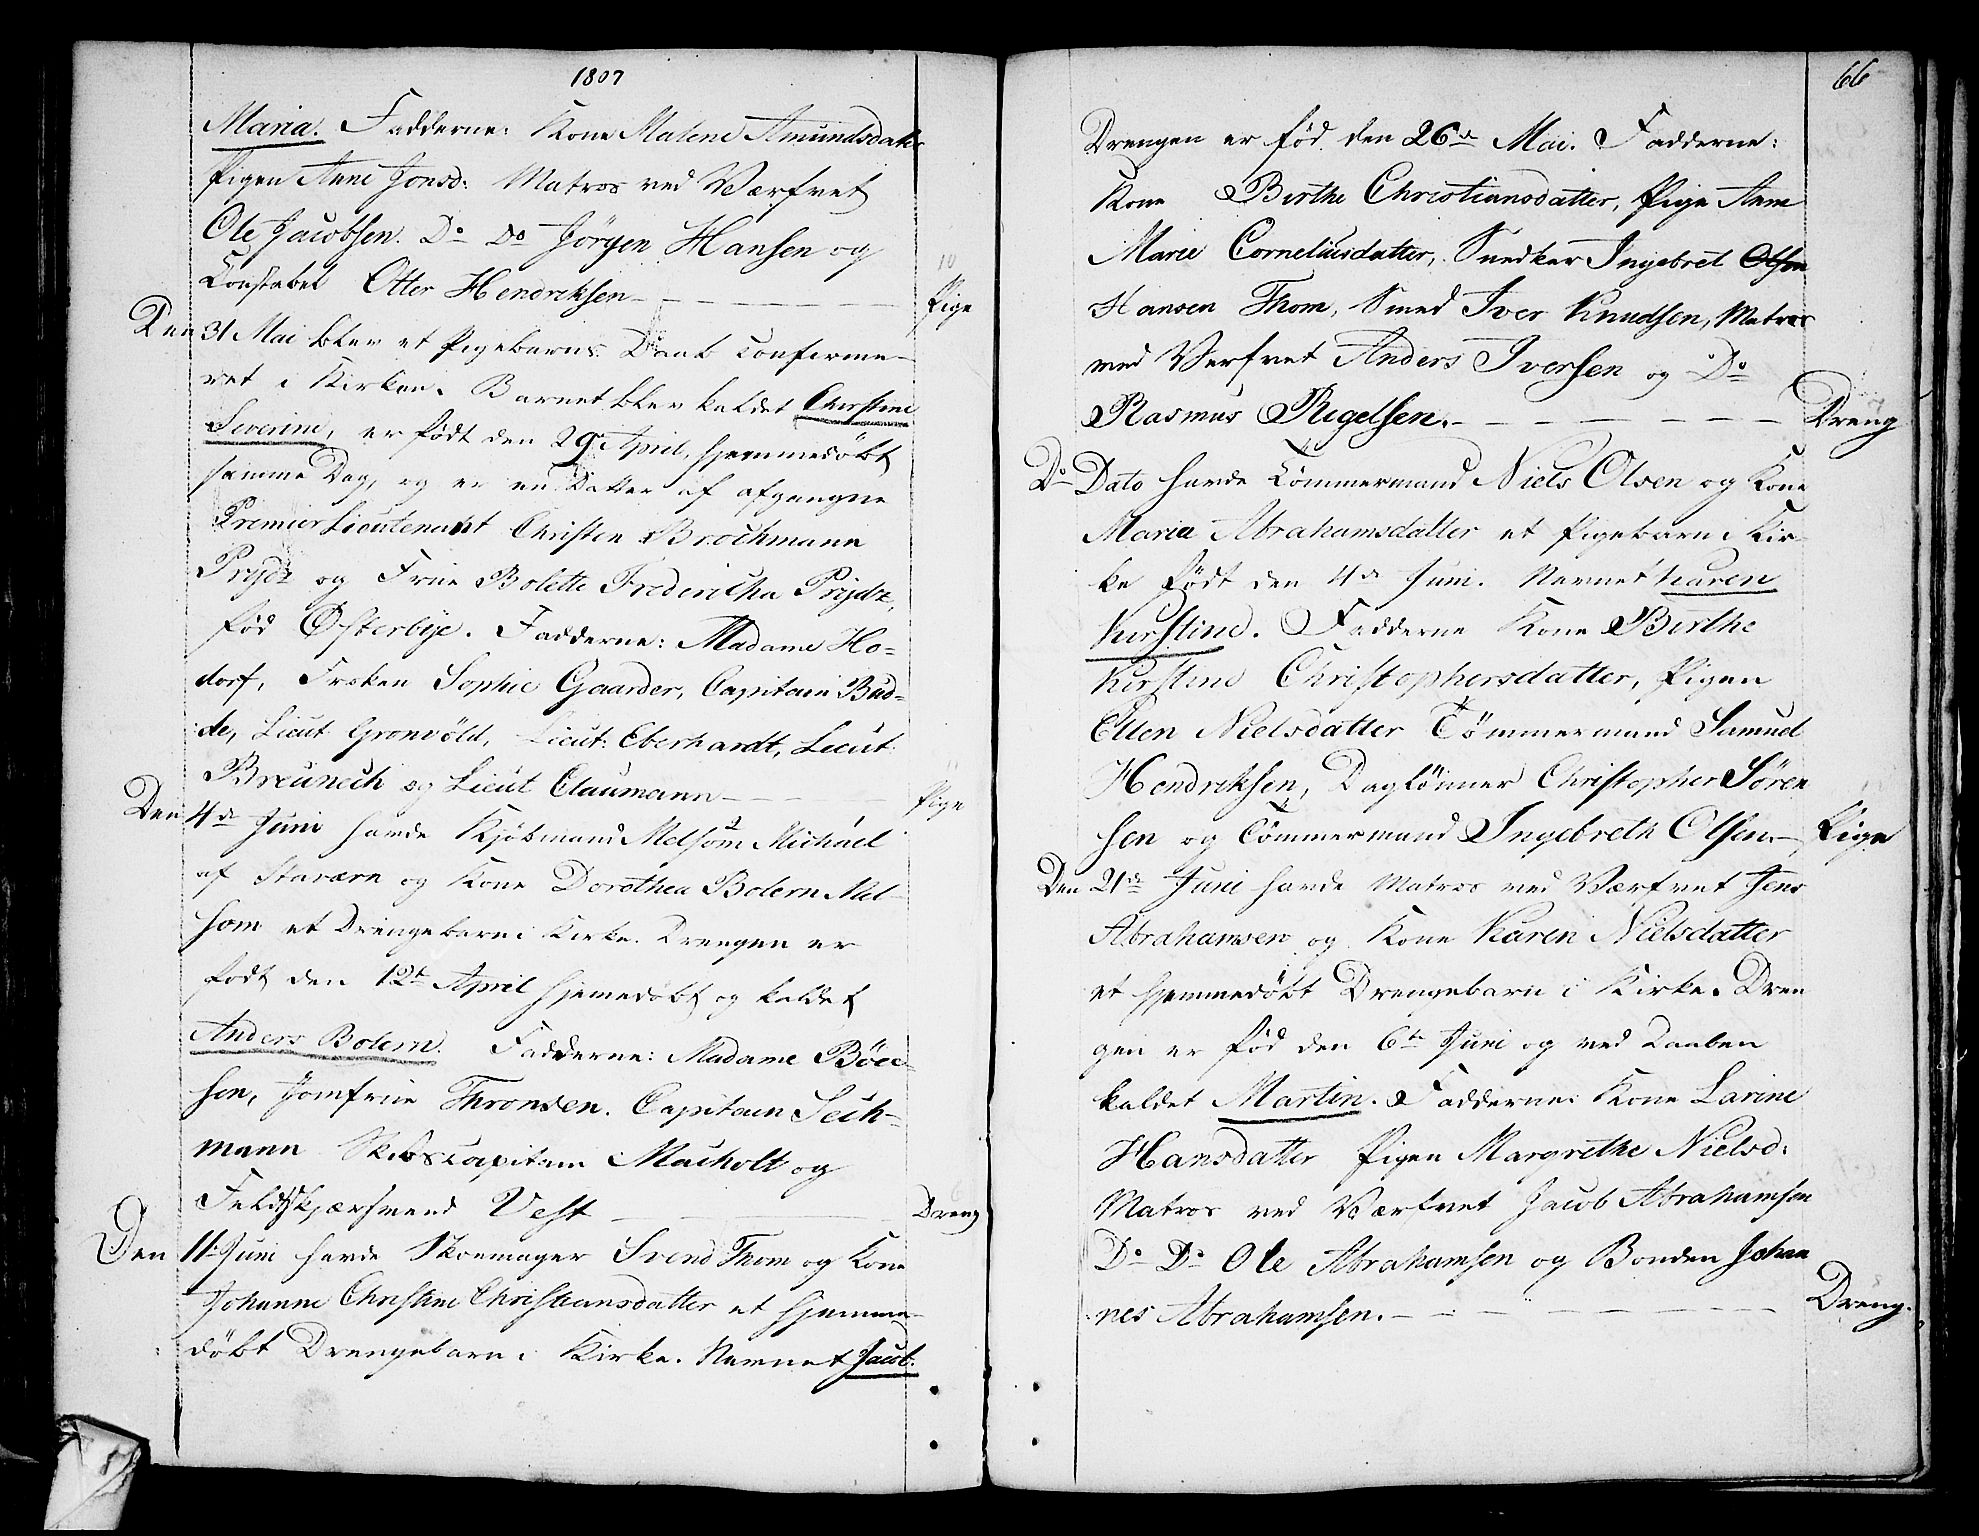 1807
Maria. Fadderne: Kone Malene Amundsdatter
Pigen Anne Jonsd: Matros ved Værfvet
Ole Jacobsen. Do Do Jörgen Hansen og
Constabel Otter Hendriksen
10
Pige
Den 31 Mai blev et Pigebarns Daab confirme-
ret i Kirken. Barnet blev kaldet Christine
Severine, er födt den 29 April, hjemmedöbt
samme Dag, og er en Datter af afgangne
Premier Lieutenant Christen Brochmann
Prydz og Frue Bolette Fredericha Prydz,
föd Østerbye. Fadderne: Madame Ho-
dorf, Frøken Sophie Gaarder, Capitain Bud-
de, Lieut Gronvöld, Lieut: Eberhardt, Lieut:
Breunech og Lieut Claumann
11
Pige
Den 4de Juni havde Kjöbmand Melsom Michael
af Staværn og Kone Dorothea Bolern Mel-
som et Drengebarn i Kirke. Drengen er
födt den 12te April hjemedöbt og kaldet
Anders Bolern. Fadderne: Madame Böe-
sen, Jomfrue Thronsen. Capitain Sech-
mann Skibscapitain Macholt og
Feldtskjærsvend Vest
Dreng
Den 11 Juni havde Skoemager Svend Thom og Kone
Johanne Christine Christiansdatter et hjemme-
döbt Drengebarn i Kirke. Nevnet Jacob.
66
Drengen er föd den 26de Mai. Fadderne:
Kone Birthe Christiansdatter, Pige Anne
Marie Corneliusdatter, Snedker Ingebret Olsen
Hansen Thom, Smed Iver Knudsen, Matros
ved Verfvet Anders Iversen og Do
Rasmus Rigelsen.
Dreng
Do Dato havde Tömmermand Niels Olsen og Kone
Maria Abrahamsdatter et Pigebarn i Kir-
ke födt den 4de Juni. Nevnet Karen
Kirstine. Fadderne Kone Birthe
Kirstine Christophersdatter, Pigen
Ellen Nielsdatter Tömmermand Samuel
Hendriksen, Daglönner Christopher Sören
sen og Tömmermand Ingebreth Olsen.
Pige
Den 21de Juni havde Matros ved Værfvet Jens
Abrahamsen og Kone Karen Nielsdatter
et hjemmedöbt Drengebarn i Kirke. Dren
gen er föd den 6te Juni og ved Daaben
kaldet Martin. Fadderne: Kone Larine
Hansdatter Pigen Margrethe Nielsd:
Matros ved Værfvet Jacob Abrahamsen
Do Do Ole Abrahamsen og Bonden Johan
nes Abrahamsen.
Dreng.